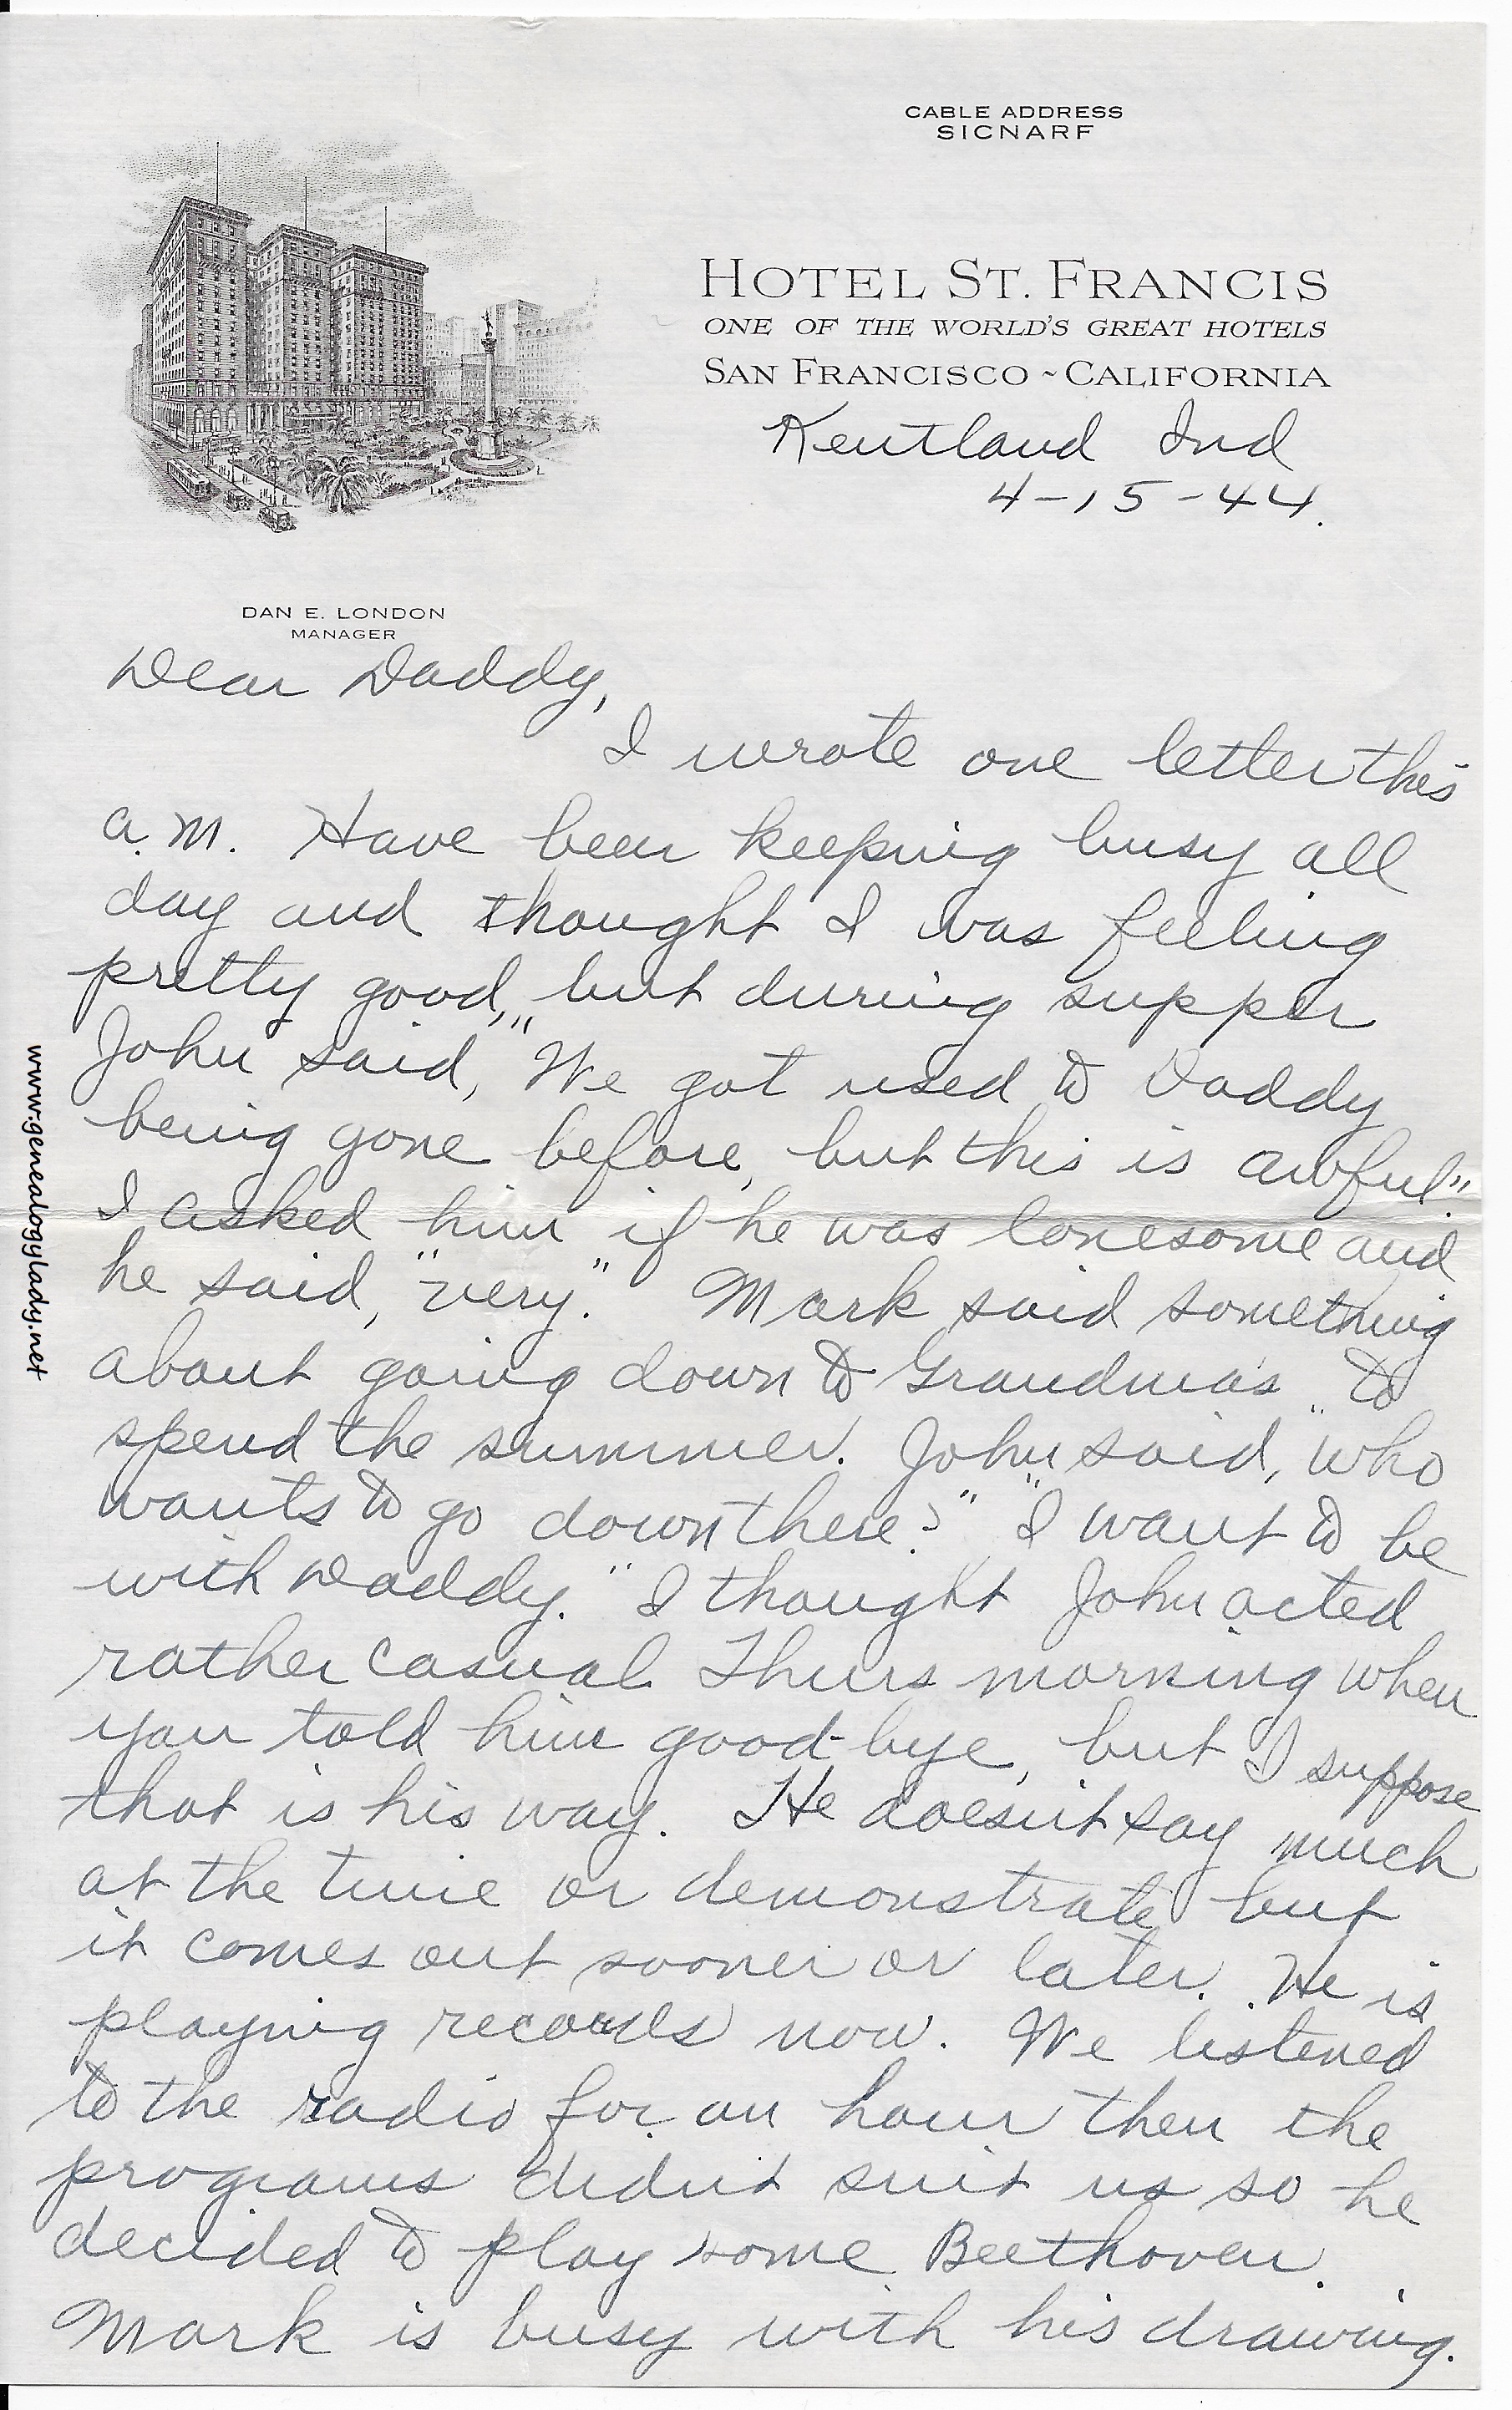 CABLE ADDRESS
SICNARF
HOTEL ST. FRANCIS
ONE OF THE WORLD'S GREAT HOTELS
SAN FRANCISCO ~ CALIFORNIA
Kentland Ind
4-15-44.
DAN E. LONDON
MANAGER
Dear Daddy,
I wrote one letter this
a.m. Have been keeping busy all
day and thought I was feeling
pretty good, but during supper
John said, "We got used to Daddy
being gone before, but this is awful."
I asked him if he was lonesome and
he said, "very." Mark said something
about going down to Grandma's to
spend the summer. John said, "who
wants to go down there?" "I want to be
with Daddy." I thought John acted
rather casual Thurs morning when
you told him good-bye, but I suppose
that is his way. He doesn't say much
at the time or demonstrate but
it comes out sooner or later. He is
playing records now. We listened
to the radio for an hour then the
programs didn't suit us so he
decided to play some Beethoven.
Mark is busy with his drawing.
www.genealogylady.net